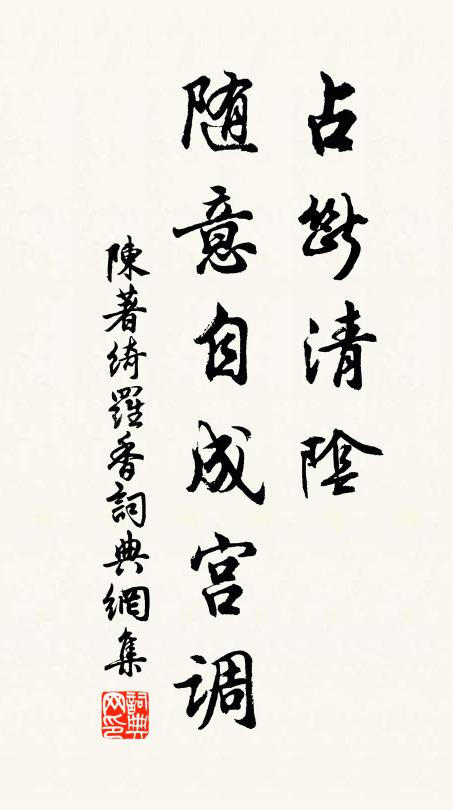 占断清陰
随意自成宫调
陳著綺羅香詞典網集
詞典網印